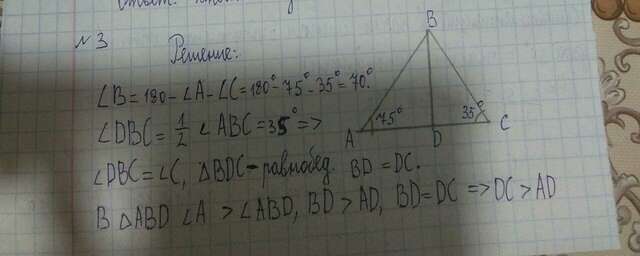 Ответ:
№ 3
Решение:
∠B=180-∠A-∠C=180°-75°-35°=70°.
∠DBC=1/2∠ABC=35°=>
∠DBC=∠C, △BDC-равнобед. BD=DC.
В △ABD ∠A >∠ABD, BD>AD, BD=DC =>DC>AD
B
75°
35°
A
D
C